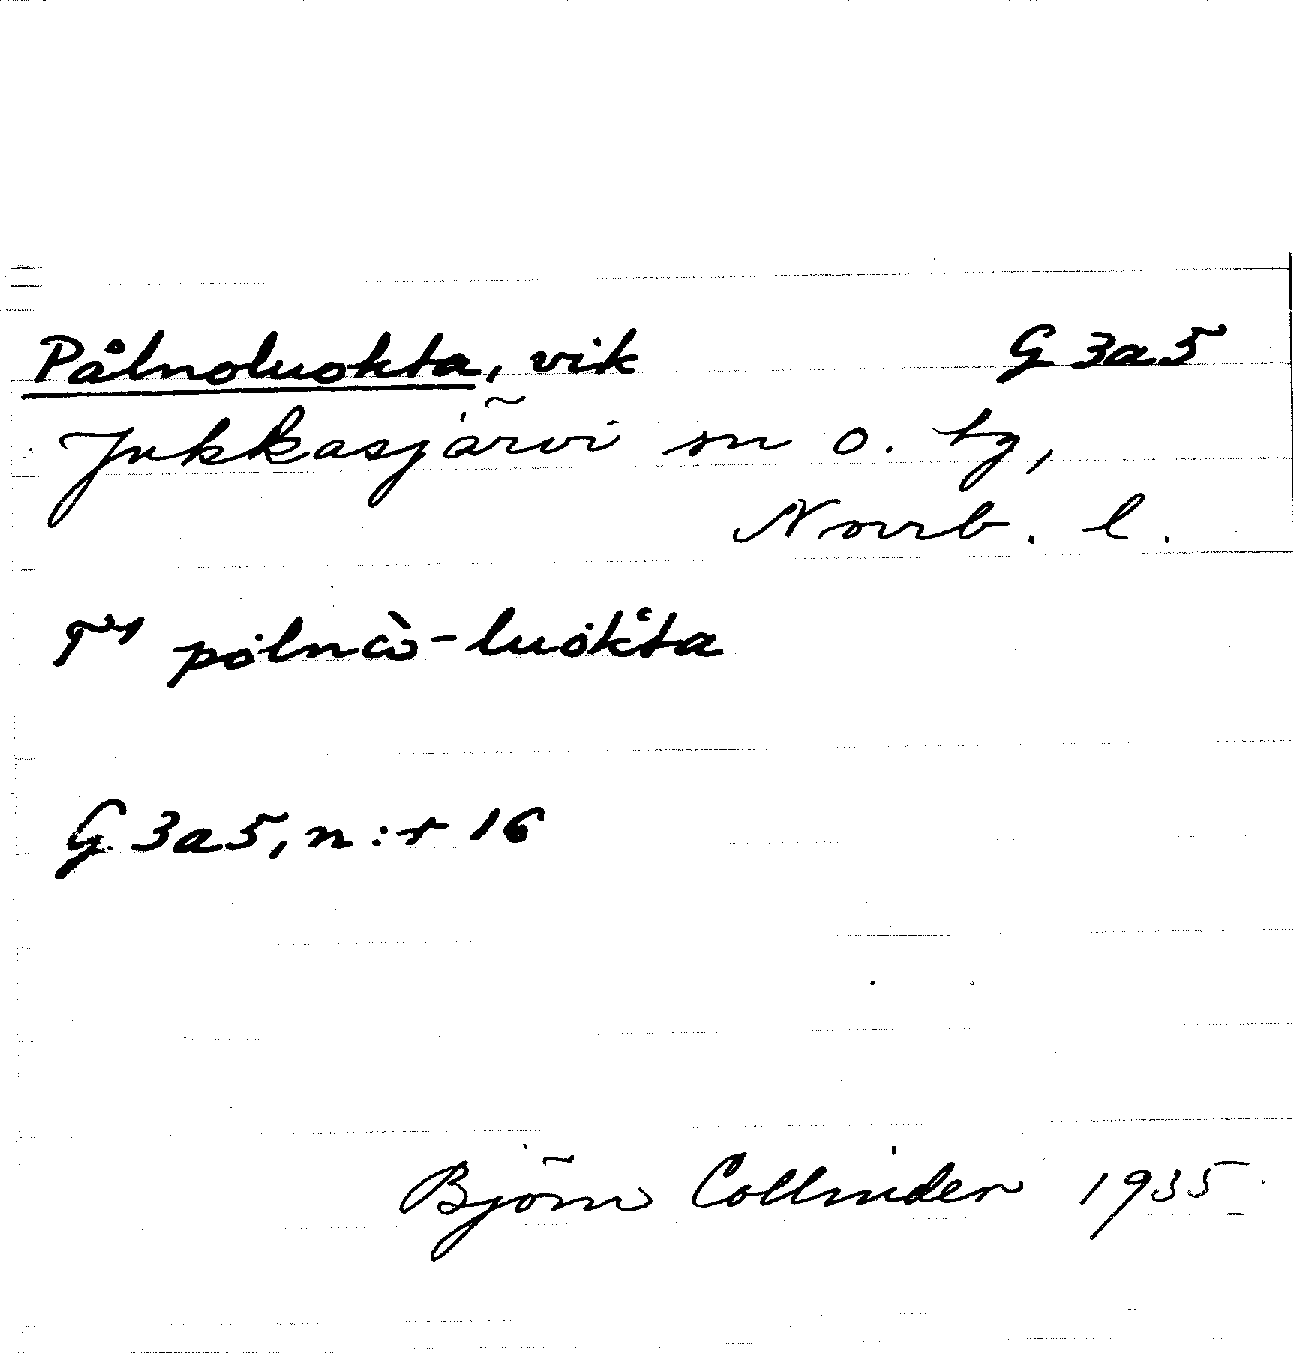 Pålnoluokta, vik G 3a5
Jukkasjärvi sn o. tg,
Norrb. l.
pȯlnὼ-luȯk̔ta
G 3a5, n:r 16
Björn Collinder 1935